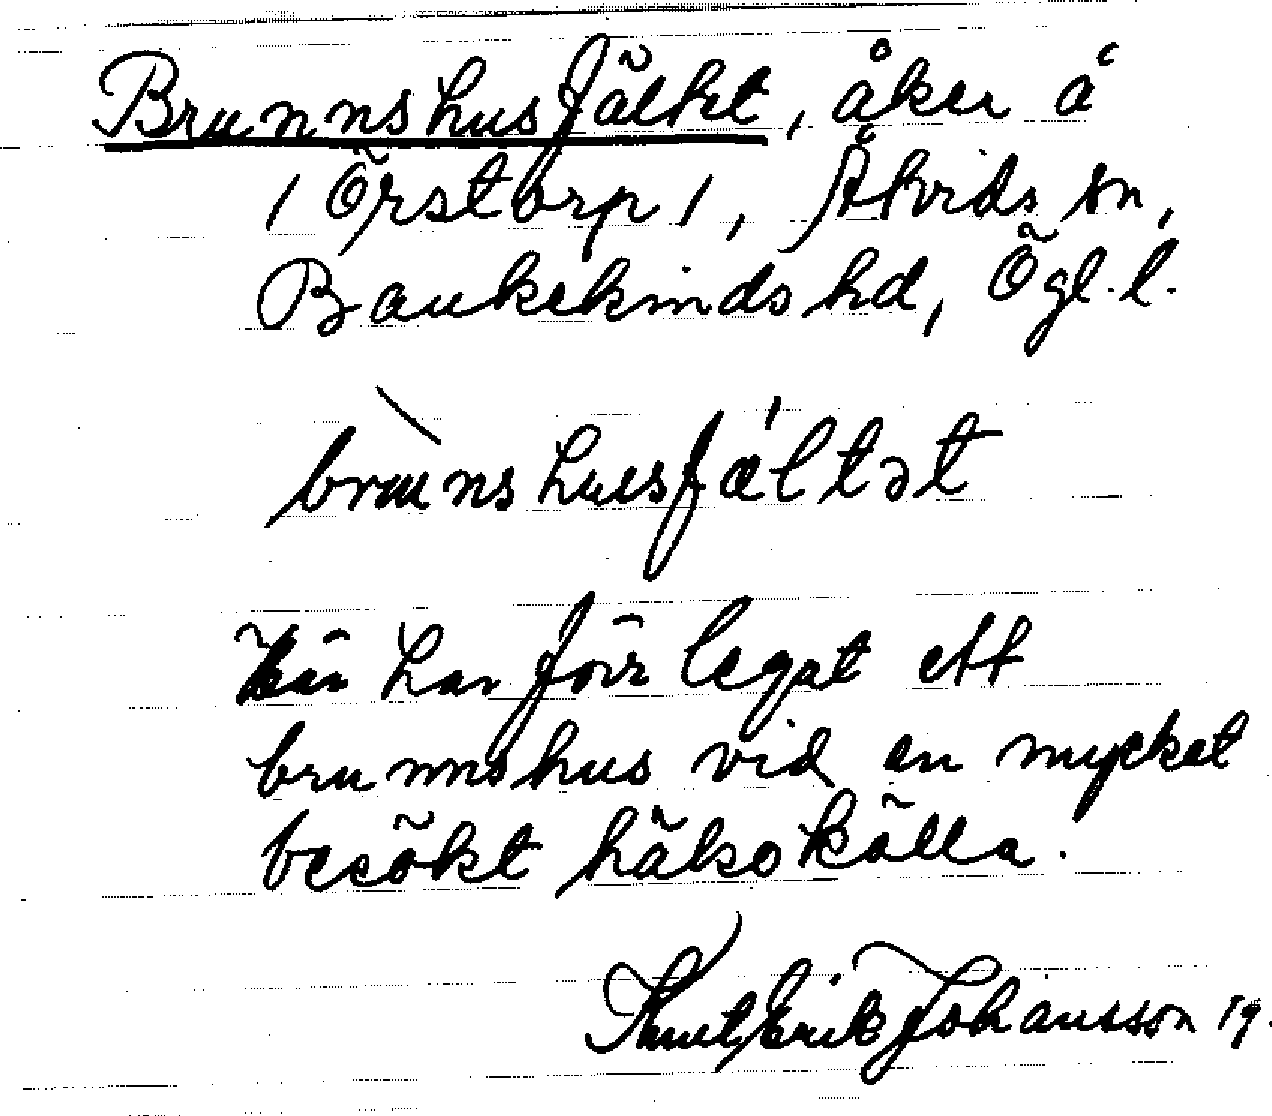 Brunnshusfältet, åker å
/Örstorp/, Åtvids sn,
Bankekinds hd, Ögl. l.
brunshusfæltət
Här har förr legat ett
brunnshus vid en mycket
besökt hälsokälla.
Knut Erik Johansson 19